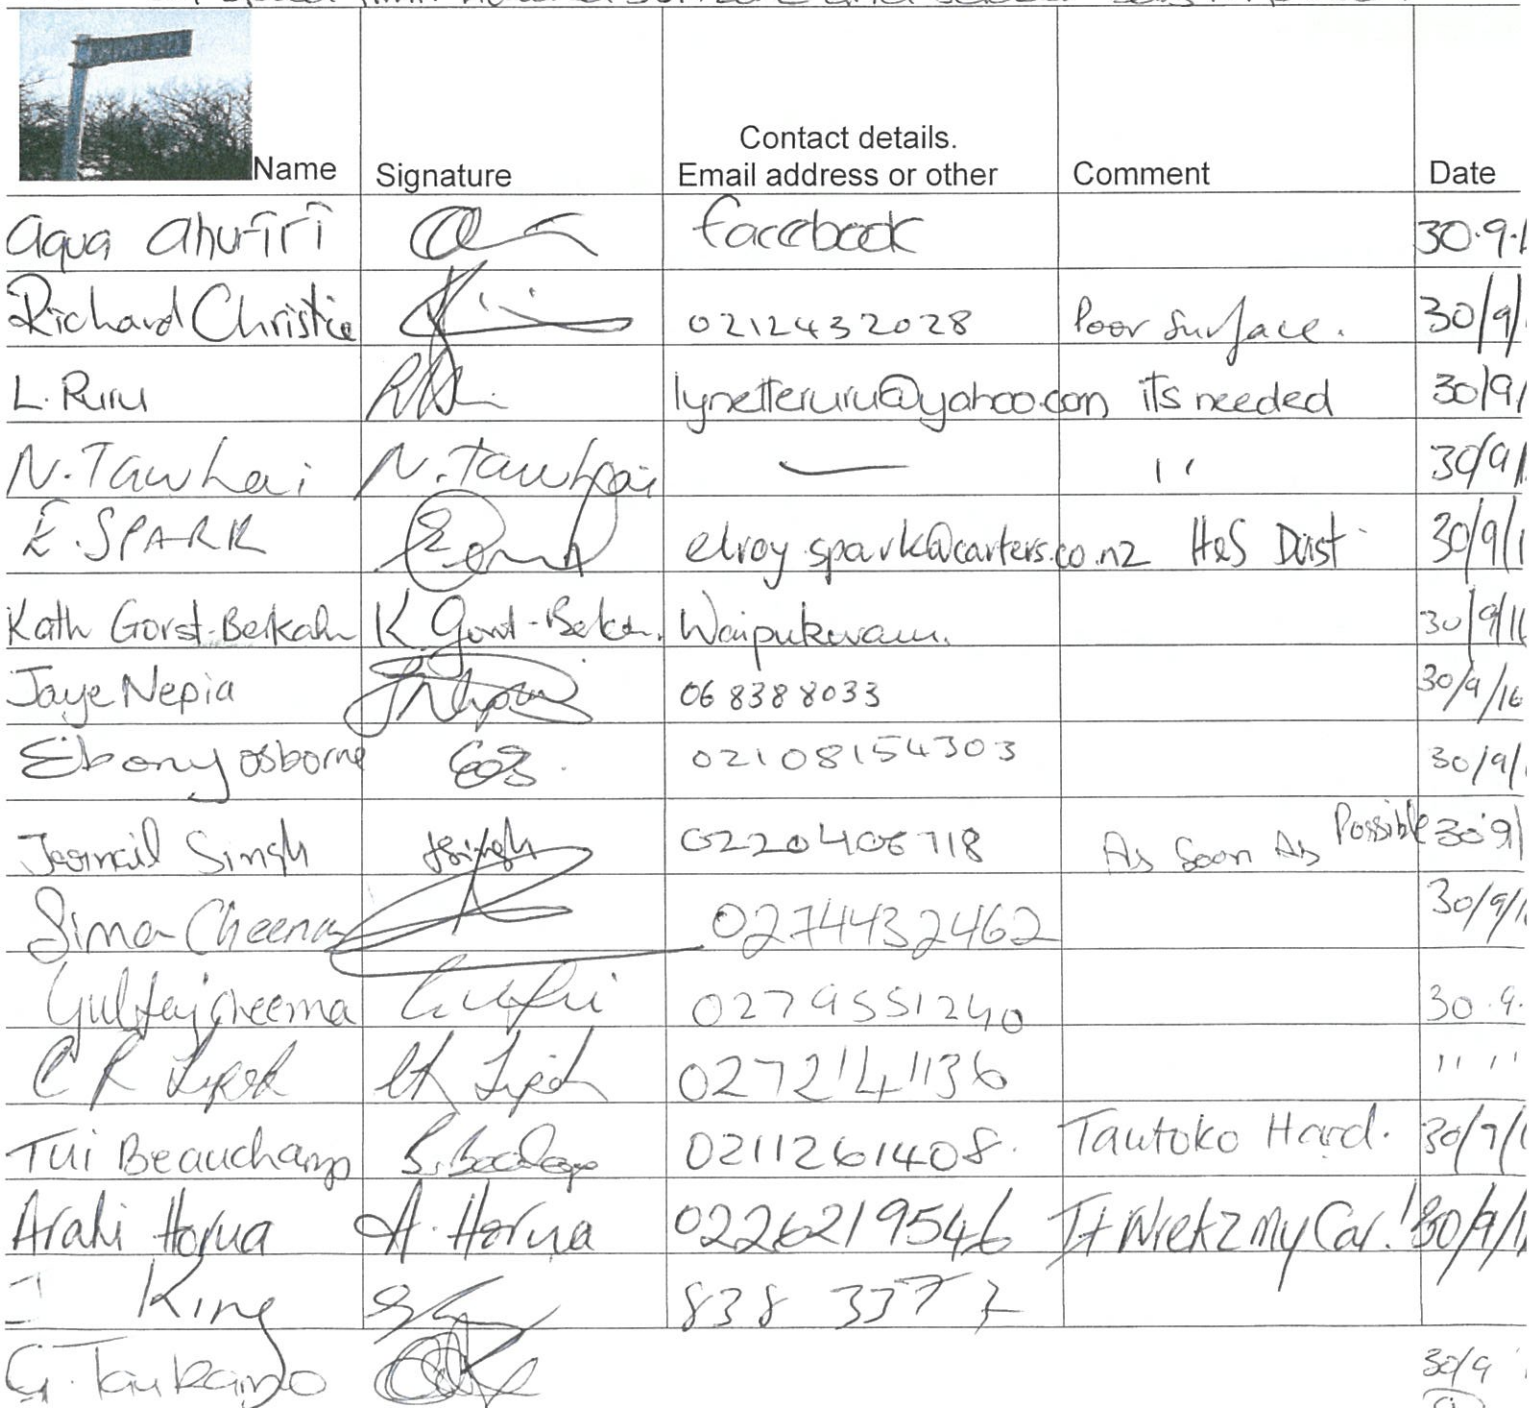 Contact details.
Name Signature Email address or other Comment Date
Aqua Ahuriri facebook 30.9.1
Richard Christie 0212432028 Poor Surface. 30/9/
L. Ruru lynetteruru@yahoo.com its needed 30/9/
N. Tawhai N. Tawhai — " 30/9/
E. SPARK elroy.spark@carters.co.nz H&S Dust 30/9/1
Kath Gorst-Berkahn K Gorst-Berkahn. Waipukurau. 30/9/16
Jaye Nepia 06 8388033 30/9/16
Ebony osborne 02108154303 30/9/
Singh Singh As Soon As Possible 30 9
Sima Cheema 0274432462 30/9/1
Gultaj Cheema 0279551240 30.9.
C R 027 2141136 " "
Tui Beauchamp 0211261408. Tautoko Hard. 30/9/1
Araki Horua A. Horua 0226219546 It Wrekz My Car! 30/9/1
King 838
G. 30/9